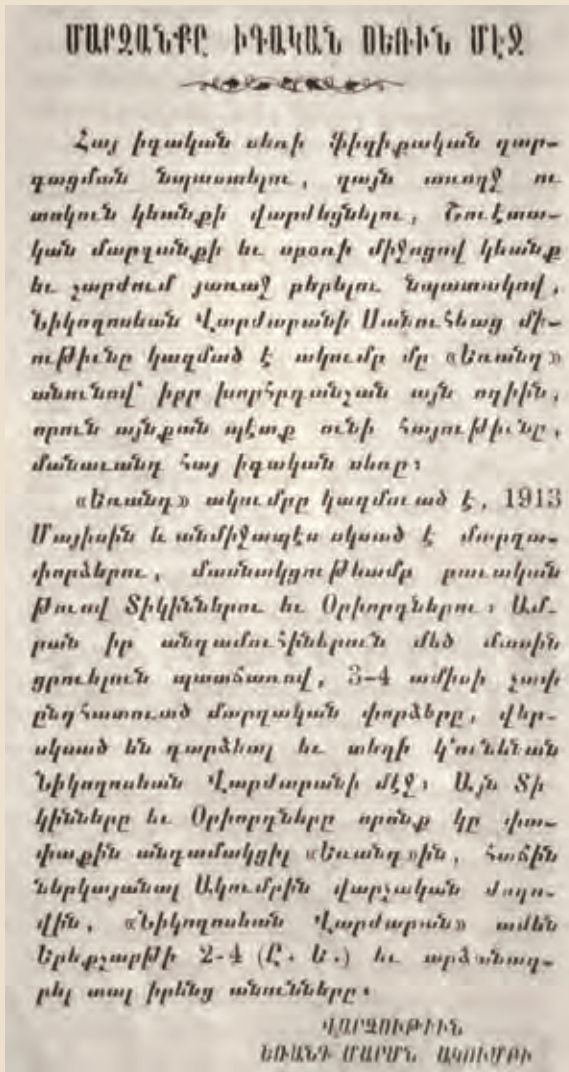 ՄԱՐԶԱՆՔԸ ԻԳԱԿԱՆ ՍԵՌԻՆ ՄԷՋ
Հայ իգական սեռի ֆիզիքական զար-
գացման նպաստելու, զայն առողջ ու
տոկուն կեանքի վարժեցնելու, Շուէտա-
կան մարզանքի եւ սբօռի միջոցով կեանք
եւ շարժում յառաջ բերելու նպատակով,
Նիկողոսեան Վարժարանի Սանուհեաց մի-
ութիւնը կազմած է ակումբ մը «Եռանդ»
անունով՝ իբր խորհրդանշան այն ոգիին,
որուն այնքան պէտք ունի հայութիւնը,
մանաւանդ հայ իգական սեռը։
«Եռանդ» ակումբը կազմուած է, 1913
Մայիսին և անմիջապէս սկսած է մարզա-
փորձերու, մասնակցութեամբ բաւական
թուով Տիկիններու եւ Օրիորդներու։ Ամ-
րան իր անդամուհիներուն մեծ մասին
ցրուելուն պատճառով, 3-4 ամիսի չափ
ընդհատուած մարզական փորձերը, վեր-
սկսած են դարձեալ եւ տեղի կ՚ունենան
Նիկողոսեան Վարժարանի մէջ։ Այն Տի
կինները եւ Օրիորդները որոնք կը փա-
փաքին անդամակցիլ «Եռանդ»ին, հաճին
ներկայանալ Ակումբին վարչական ժողո-
վին, «Նիկողոսեան Վարժարան» ամեն
Երեքշաբթի 2-4 (Ը. Ե.) եւ արձանագ-
րել տալ իրենց անունները։
ՎԱՐՉՈՒԹԻՒՆ
ԵՌԱՆԴ ՄԱՐՄՆ. ԱԿՈՒՄԲԻ